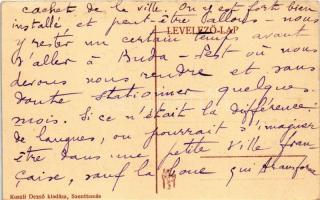 cachet de la ville. On y est fort bien
installé et peut-être allons-nous
y rester un certain temps avant
LEVELEZŐ-LAP
d'aller à Buda-Pest où nous
devons nous rendre et sans
doute stationner quelques
mois. Si ce n'était la différence
de langues, on pourrait s'imaginer
être dans une petite ville fran
çaise, sauf la boue qui transforme
Kunál Dezső kiadása, Szentfamás